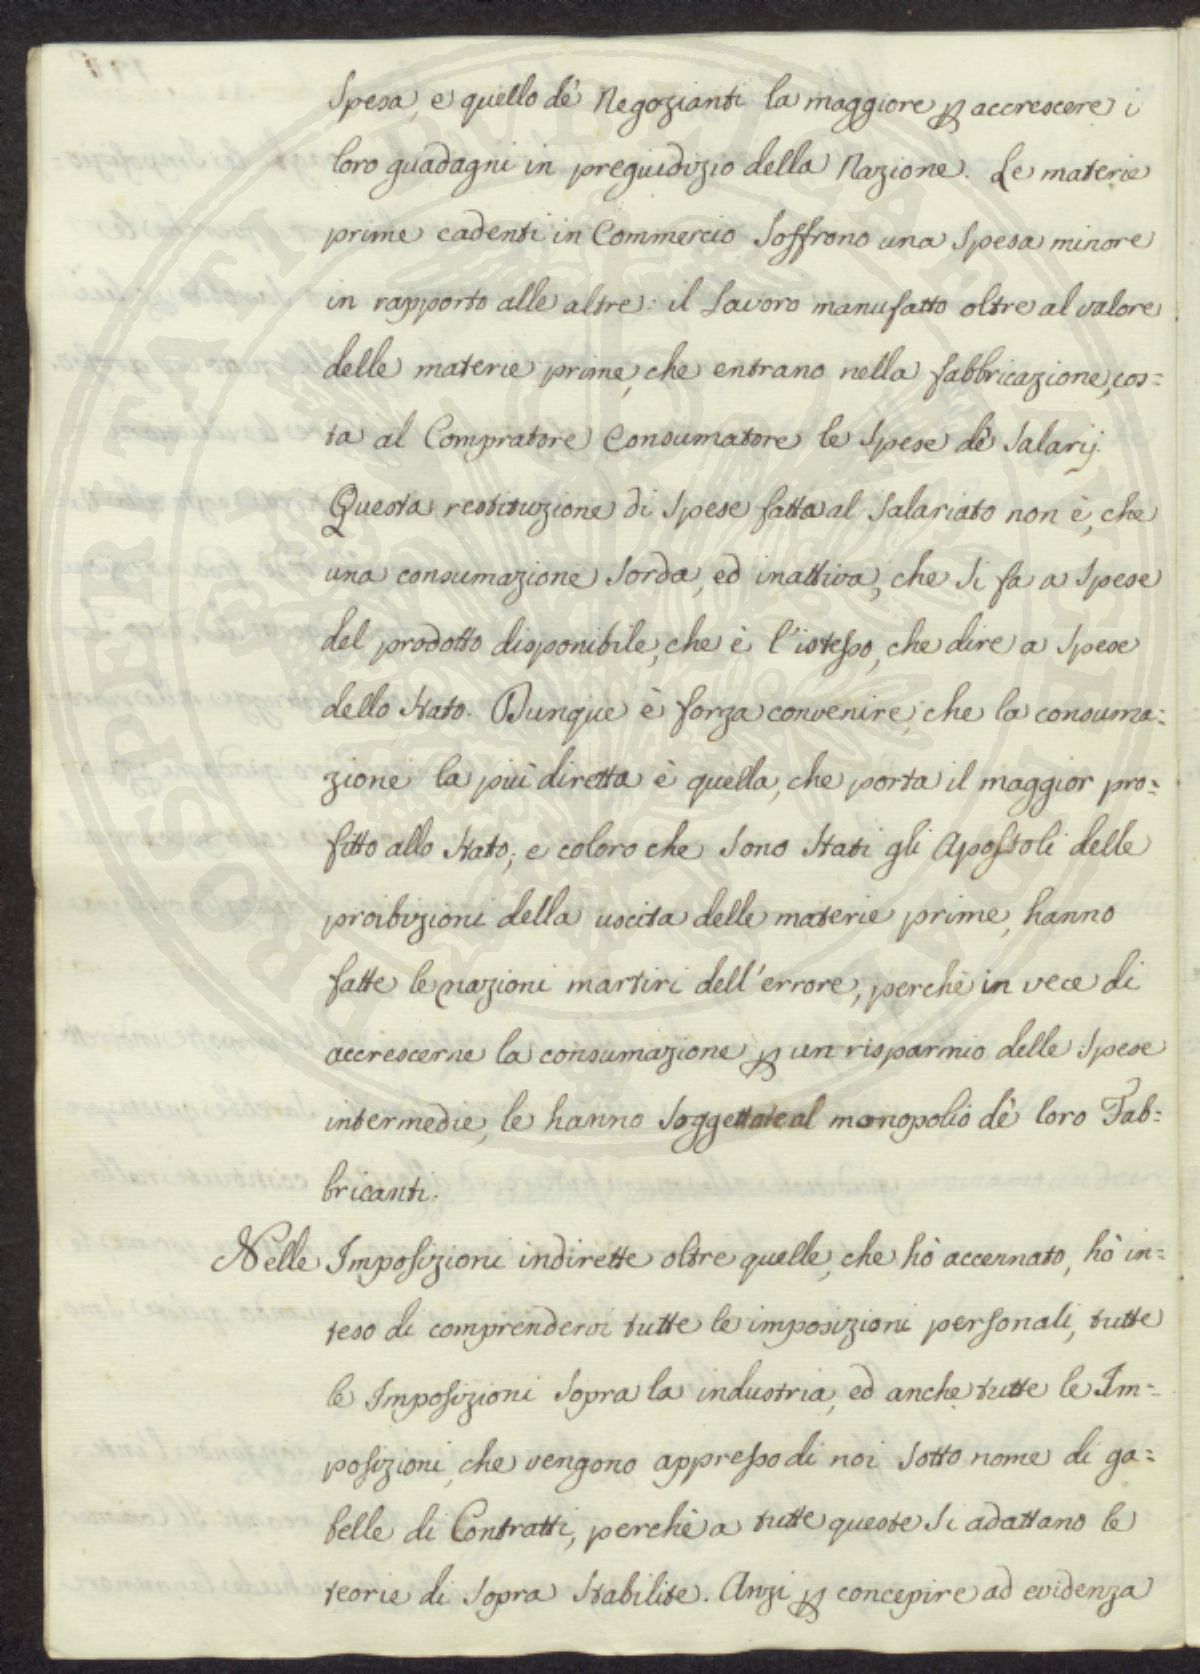 Spesa, e quello de' Negozianti la maggiore p accrescere i
loro guadagni in preguidizio della Nazione. Le materie
prime cadenti in Commercio soffrono una spesa minore
in rapporto alle altre: il Lavoro manufatto oltre al valore
delle materie prime, che entrano nella fabbricazione, cos=
ta al Compratore Consumatore le spese de' Salarij.
Questa restituzione di spese fatta al Salariato non è, che
una consumazione sorda, ed inattiva, che si fa a spese
del prodotto disponibile, che è l'istesso, che dire a spese
dello Stato. Dunque è forza convenire, che la consuma=
zione la più diretta è quella, che porta il maggior pro=
fitto allo Stato; e coloro che sono stati gli Apostoli delle
proibizioni della uscita delle materie prime, hanno
fatte le nazioni martiri dell'errore, perchè in vece di
accrescerne la consumazione p un risparmio delle spese
intermedie, le hanno soggettate al monopolio de' loro Fab=
bricanti.
Nelle Imposizioni indirette oltre quelle, che hò accennato, hò in=
teso di comprendervi tutte le imposizioni personali, tutte
le Imposizioni sopra la industria, ed anche tutte le Im=
posizioni, che vengono appresso di noi sotto nome di ga=
belle di Contratti, perchè a tutte queste si adattano le
teorie di sopra stabilite. Anzi p concepire ad evidenza
PROSPERITATI PUBLICAE